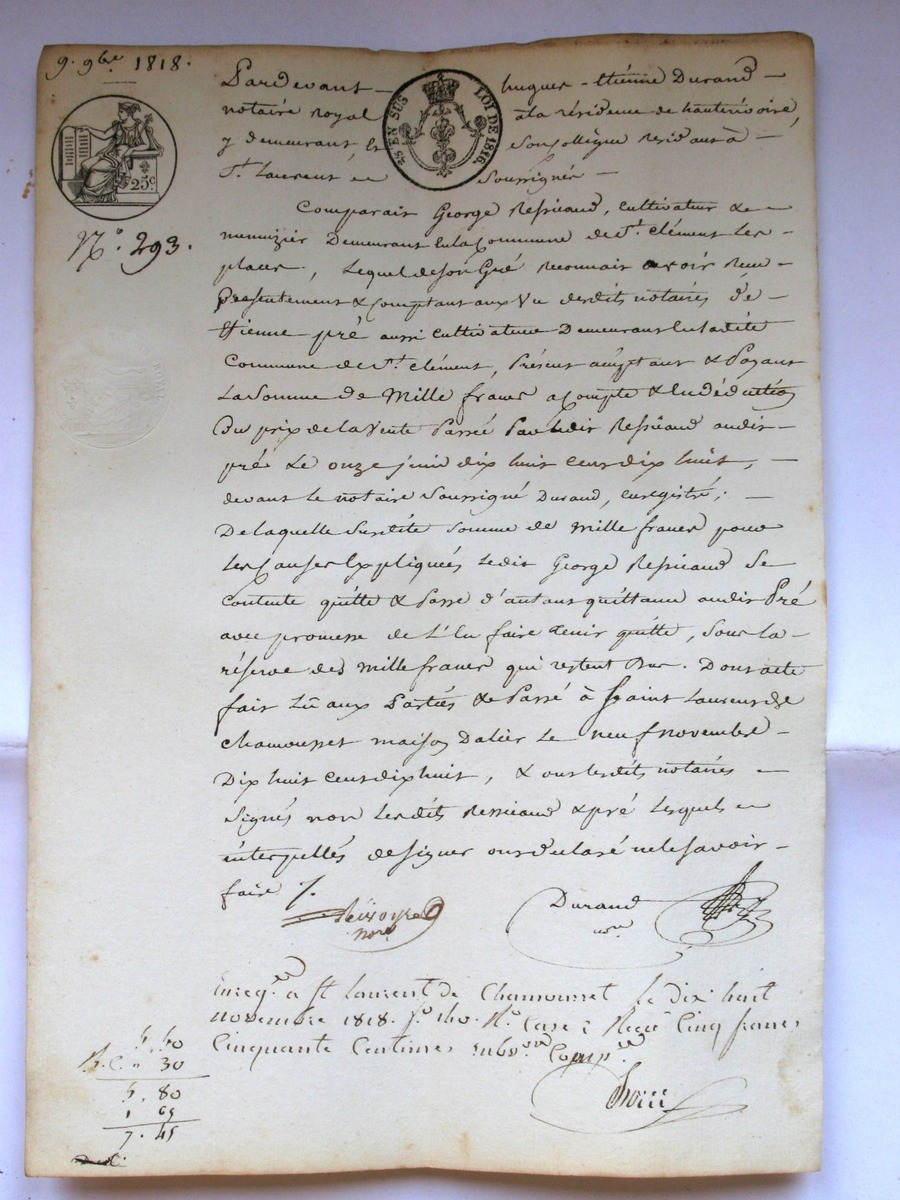 9. 9bre 1818.
Pardevant — hugues-Etiénne Durand —
notaire royal à la résidence de hauterivoire,
y demeurant, et Son Collègue Résidant à —
St. Laurent — Soussignés —
EN SUS
LOI DE 1816.
25c
No. 293.
Comparait George Ressicaud, cultivateur & —
menuizier Demeurant en la Commune de St. clément les
places, Lequel de son Gré reconnait avoir Reçu
Présentement & Comptant aux Vu desdits notaires d'E—
ttienne pré aussi cultivateur Demeurant en ladite
Commune de St. clément, Présent acceptant & Payant
La Somme de Mille francs a Compte & En déduction
Du prix de la Vente Passée Par ledit Ressicaud audit
pré Le onze juin dix huit cent dix huit, —
devant le notaire Soussigné Durand, enregistré; —
De laquelle Susdite Somme de mille francs pour
Les Causes Expliquées Ledit George Ressicaud Se
Contente quitte & Passe d'autant quittance audit Pré
avec promesse de L'En faire tenir quitte, Sous la
réserve des mille francs qui restent Dus. Dont acte
fait Lû aux Parties & Passé à Saint Laurent de
chamousset maison Dalier Le neuf novembre —
Dix huit cent dix huit, & ont lesdits notaires —
Signés non Lesdits Ressicaud & pré Lesquels —
interpellés de signer ont déclaré ne le savoir —
faire /.
nore
Durand
nre
Enregé. a St. laurent de Chamousset le dix huit
novembre 1818. fo. 140. Ro. Case 2 Reçu Cinq francs
Cinquante Centimes subvon Compse
5. 50
30
5. 80
1 65
7. 45